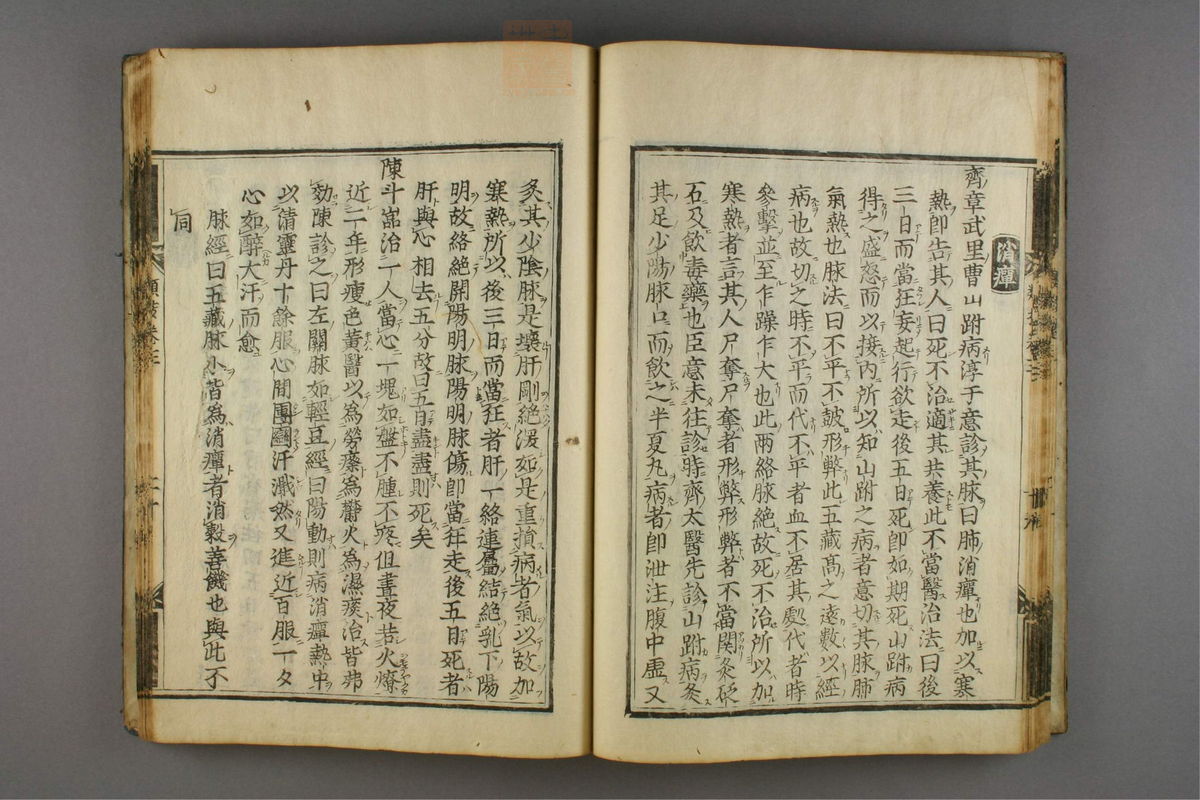 消癉
齊章武里曹山跗病淳于意診其脉曰肺消癉也加以寒
熱卽告其人曰死不治適其共養此不當醫治法曰後
三日而當狂妄起行欲走後五日死卽如期死山跗病
得之盛怒而以接內所以知山跗之病者意切其脉肺
氣熱也脉法曰不平不皷形弊此五藏髙之遠數以經
病也故切之時不平而代不平者血不居其處代者時
參擊並至乍躁乍大也此兩絡脉絶故死不治所以加
寒熱者言其人尸奪尸奪者形弊形弊者不當関灸砭
石及飲毒藥也臣意未往診時齊太醫先診山跗病灸
其足少陽脉口而飲之半夏丸病者卽泄注腹中虛又
灸其少陰脉是壞肝剛絶深如是重損病者氣以故加
寒熱所以後三日而當狂者肝一絡連屬結絶乳下陽
明故絡絶開陽明脉陽明脉傷卽當狂走後五日死者
肝與心相去五分故曰五日盡盡則死矣
陳斗嵓治一人當心一塊如盤不腫不疼但晝夜若火燎
近二年形瘦色黃醫以為勞瘵為欝火為濕痰治皆弗
効陳診之曰左關脉如輕豆經曰陽動則病消癉熱中
以清靈丹十餘服心間團圞汗濈然又進近百服一夕
心如醉大汗而愈
脉經曰五藏脉小皆為消癉者消穀善饑也與此不
同